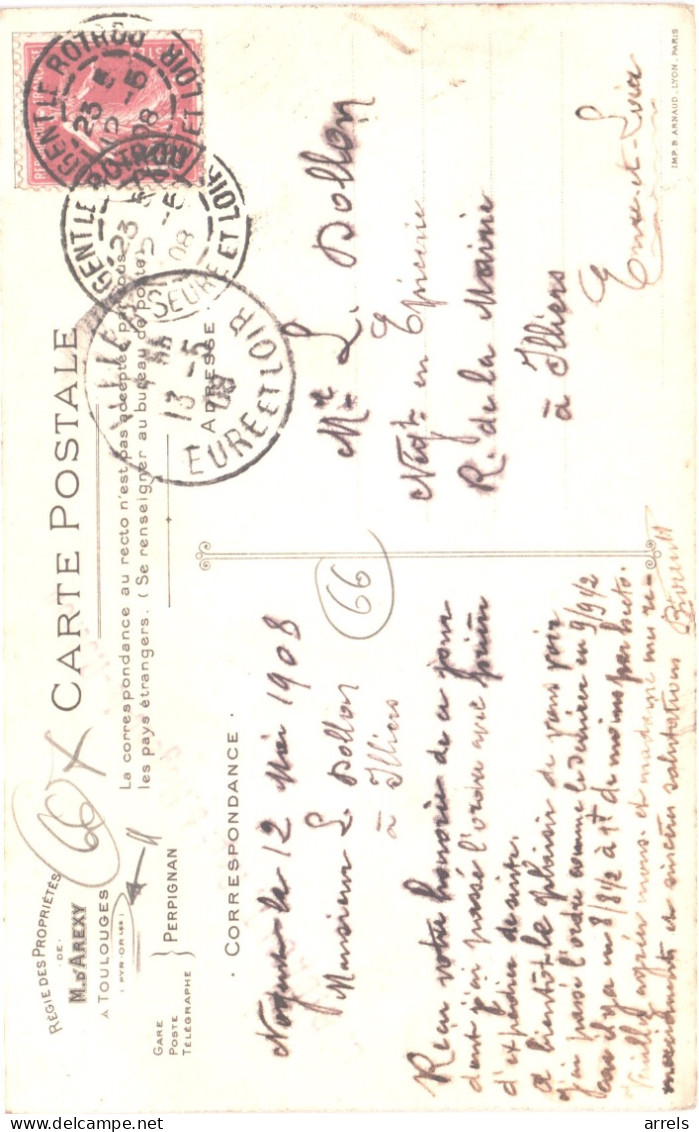 RÉGIE DES PROPRIÉTÉS
· DE ·
M. D'AREXY
A TOULOUGES
(PYR-OR-LES)
GARE
POSTE
TÉLÉGRAPHE
PERPIGNAN
66
CARTE POSTALE
La correspondance au recto n'est pas acceptée par tous
les pays étrangers. (Se renseigner au bureau de poste)
ADRESSE
· CORRESPONDANCE ·
66
Nogent le 12 Mai 1908
Monsieur L. Dollon
à Illiers
Reçu votre honorée de ce jour
dont j'ai passé l'ordre avec prière
d'expédier de suite.
A bientôt le plaisir de vous voir
j'ai passé l'ordre comme le dernier en 9/9½
car il y a en 8/8½ à 1f de moins par hecto.
Veuillez agréer mons. et madame mes re-
merciements et sincères salutations
Mr L. Dollon
Négt. en Epicerie
R. de la Mairie
à Illiers
Eure-et-Loir
NOGENT LE ROTROU
23
12 -5
08
EURE ET LOIR
NOGENT LE ROTROU
23
12 -5
08
EURE ET LOIR
ILLIERS
13 -5
08
EURE ET LOIR
IMP. B ARNAUD _ LYON _ PARIS
arrels